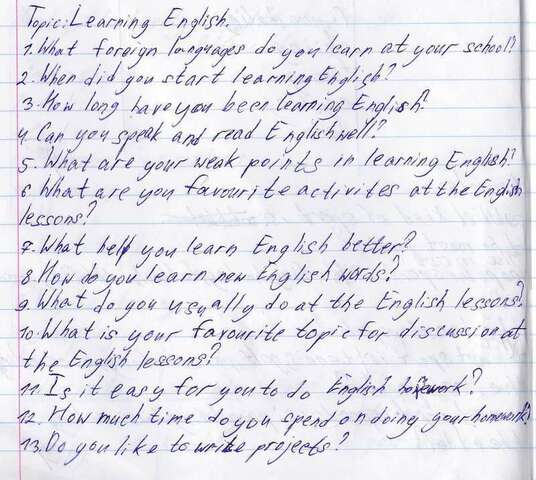 Topic: Learning English.
1. What foreign languages do you learn at your school?
2. When did you start learning English?
3. How long have you been learning English?
4. Can you speak and read English well?
5. What are your weak points in learning English?
6. What are you favourite activites at the English
lessons?
7. What help you learn English better?
8. How do you learn new English words?
9. What do you usually do at the English lessons?
10. What is your favourite topic for discussion at
the English lessons?
11. Is it easy for you to do English homework?
12. How much time do you spend on doing your homework?
13. Do you like to write projects?